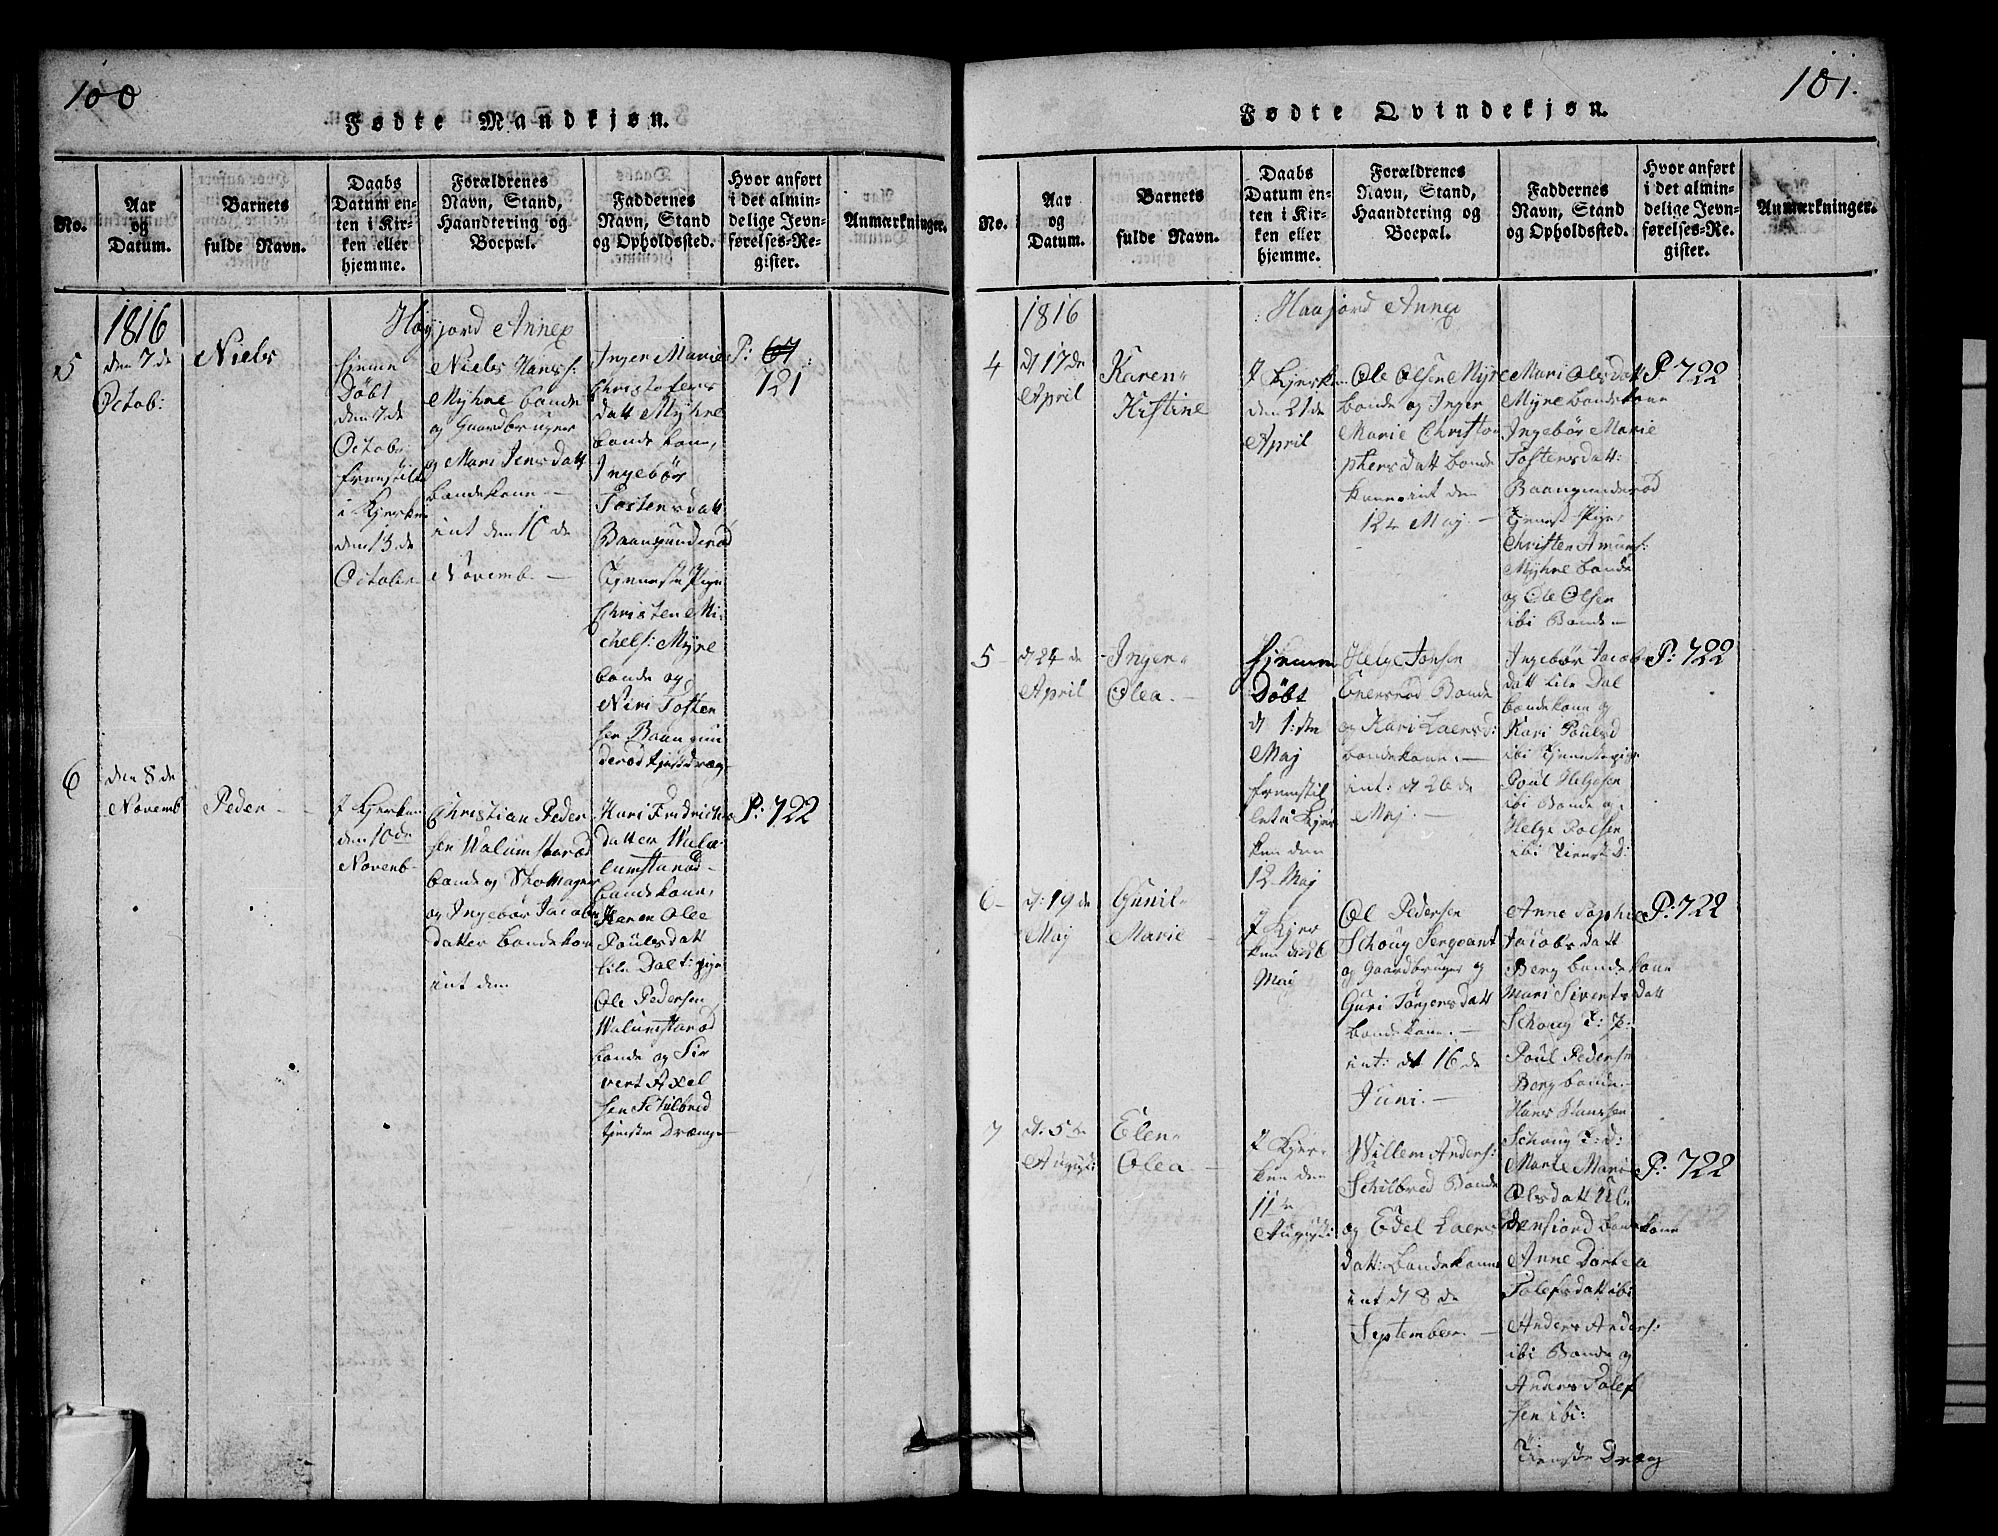 100
Fødte Mandkjøn.
No.
Aar
og
Datum.
Barnets
fulde Navn.
Daabs
Datum en-
ten i Kir-
ken eller
hjemme.
Forældrenes
Navn, Stand,
Haandtering og
Boepæl.
Faddernes
Navn, Stand
og Opholdssted.
Hvor anført
i det almin-
delige Jevn-
førelses-Re-
gister.
Anmærkninger.
1816
Høyjord Annex
5
den 7de
Octob:
Niels
hjeme
Døbt
den 7de
Octobr
fremstilt
i Kjerken
den 13de
October
Niels Hanss:
Myhre bonde
og Gaardbruger
og Mari Jensdatt
bondekone –
int den 10de
Novemb. –
Inger Marie
Christofers
datt Myhre
bonde kone,
Ingebør
Tostensdatt
Baangunderød
Tjeneste Pige
Christen Mi-
chels: Myre
bonde og
Niri Tosten
sen Baangun
derød
P: 67
721
6
den 8de
Novemb
Peder –
I Kjerken
den 10de
Novemb
Christian Peder
sen Walumsrød
bonde og Skomager
og Ingebør Jacobs
datter bondekone
int den
Kari Fridrichs
datter
bondekone,
Karen Olea
Poulsdatt
Lile Dal t: pige
Ole Pedersen
bonde og Si-
vert Axel
sen Schilbred
tjeneste Dræng –
P: 722
101.
Fødte Qvindekjøn.
No.
Aar
og
Datum.
Barnets
fulde Navn.
Daabs
Datum en-
ten i Kir-
ken eller
hjemme.
Forældrenes
Navn, Stand,
Haandtering og
Boepæl.
Faddernes
Navn, Stand
og Opholdssted.
Hvor anført
i det almin-
delige Jevn-
førelses-Re-
gister.
Anmærkninger.
1816
Haajord Annex
4
d 17de
April
Karen
Kistine
I Kjerken
den 21de
April
Ole Olsen Myre
bonde og Inger
Marie Christo
phersdatt bonde
kone int den
12te Maj. –
Mari Olsdatt
Myre bondekone
Ingebør Marie
Tostensdatt:
Baangunderød
Tjenest Pige
Christen Amuns:
Myhre bonde
og Ole Olsen
ibi Bonde –
P 722
5
d 24de
April
Inger
Olea. –
Hjemme
Døbt
d 1:ste
Maj
fremstil
let i Kjer
ken den
12 Maj
Helge Jonsen
Enersrød Bonde
og Kari Laersd:
bondekone. –
int: d 26de
Maj. –
Ingebør Jacobs
datt Lile Dal
bondekone og
Kari Poulsd
ibi Tjenestepige
Poul Helgesen
ibi Bonde og
Helge Polsen
ibi Tienst D:
P: 722
6
d: 19de
Maj
Gunil
Marie –
I Kjer
ken d 26
Maj
Ole Pedersen
Schoug Sergeant
og Gaardbruger og
Guri Torgersdatt
bondekone. –
int: d 16de
Juni. –
Anne Sophie
Jacobsdatt
Berg bondekone
Mari Sivertsdatt
Schoug T: P:
Poul Pedersen
Berg bonde. –
Hans Hanssen
Schoug T: d:
P: 722
7
d: 5te
Augusti
Elen
Olea –
I Kjer-
ken den
11te
Augusti
Willem Anders:
Schilbred Bonde
og Edel Laers
datt: Bondekone
int d 8de
September. –
Marte Marie
Olsdatt
bondekone
Anne Dortea
Tolefsdatt ibi
Anders Anders:
ibi Bonde og
Anders Tolef
sen ibi:
Tieneste Dræng
P: 722